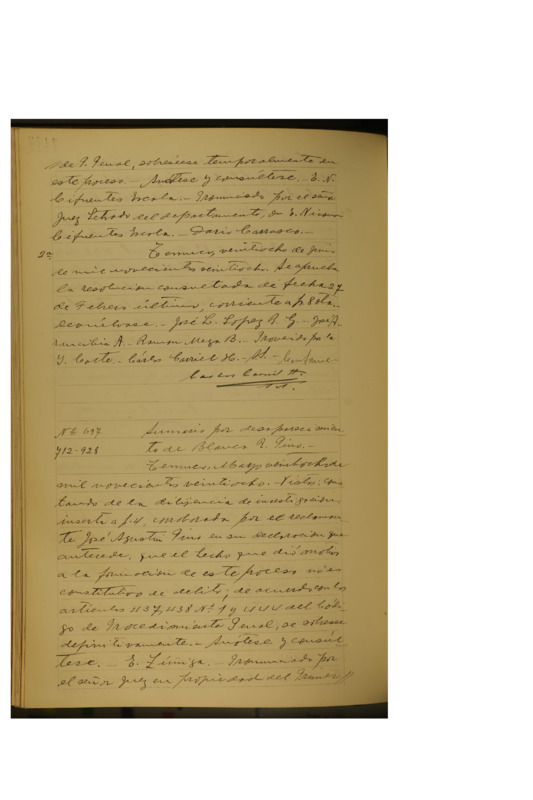 de P. Penal, sobreséese temporalmente en
este proceso. - Anótese y consúltese. - E. N.
Cifuentes Escala. - Pronunciado por el señor
Juez Letrado del departamento, don E. Nicanor
Cifuentes Escola. - Dario Carrasco. -
2a Temuco, veintiocho de Junio
de mil novecientos veintiocho. Se aprueba
la resolucion consultada de fecha 27
de Febrero último, corriente a fs 8 vta.
Devuélvase. - José L. Lopez R. G. - José A.
A. - Ramon Meza B. - Proveido por la
I. Corte. - Carlos Carriel H. - S. - Conforme
Carlos Carriel H.
Sumario por desaparecimien
912-928 to de Blanca R. Pino. -
Temuco, Mayo veintiocho de
mil novecientos veintiocho. - Vistos: cons
tando de la diligencia de investigacion
inserta a f. 4, corroborada por el reclaman
te José Agustin Pino en su declaracion que
antecede, que el hecho que dió motivo
a la formacion de este proceso no es
constitutivo de delito, de acuerdo con los
articulos 437, 438 No 1 y 444 del Códi-
go de Procedimiento Penal, se sobresee
definitivamente. - Anótese y consúl
tese. - E. Zúñiga. - Pronunciado por
el señor Juez en propiedad del Primer